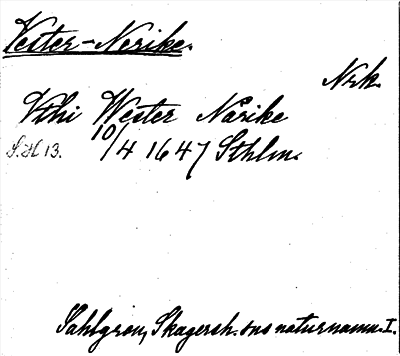 Vester-Nerike.
Nrk.
Vthi Wester Nårike
S.H 13. 10/4 1647 Sthlm.
Sahlgren, Skagersh. sns naturnamn. I.